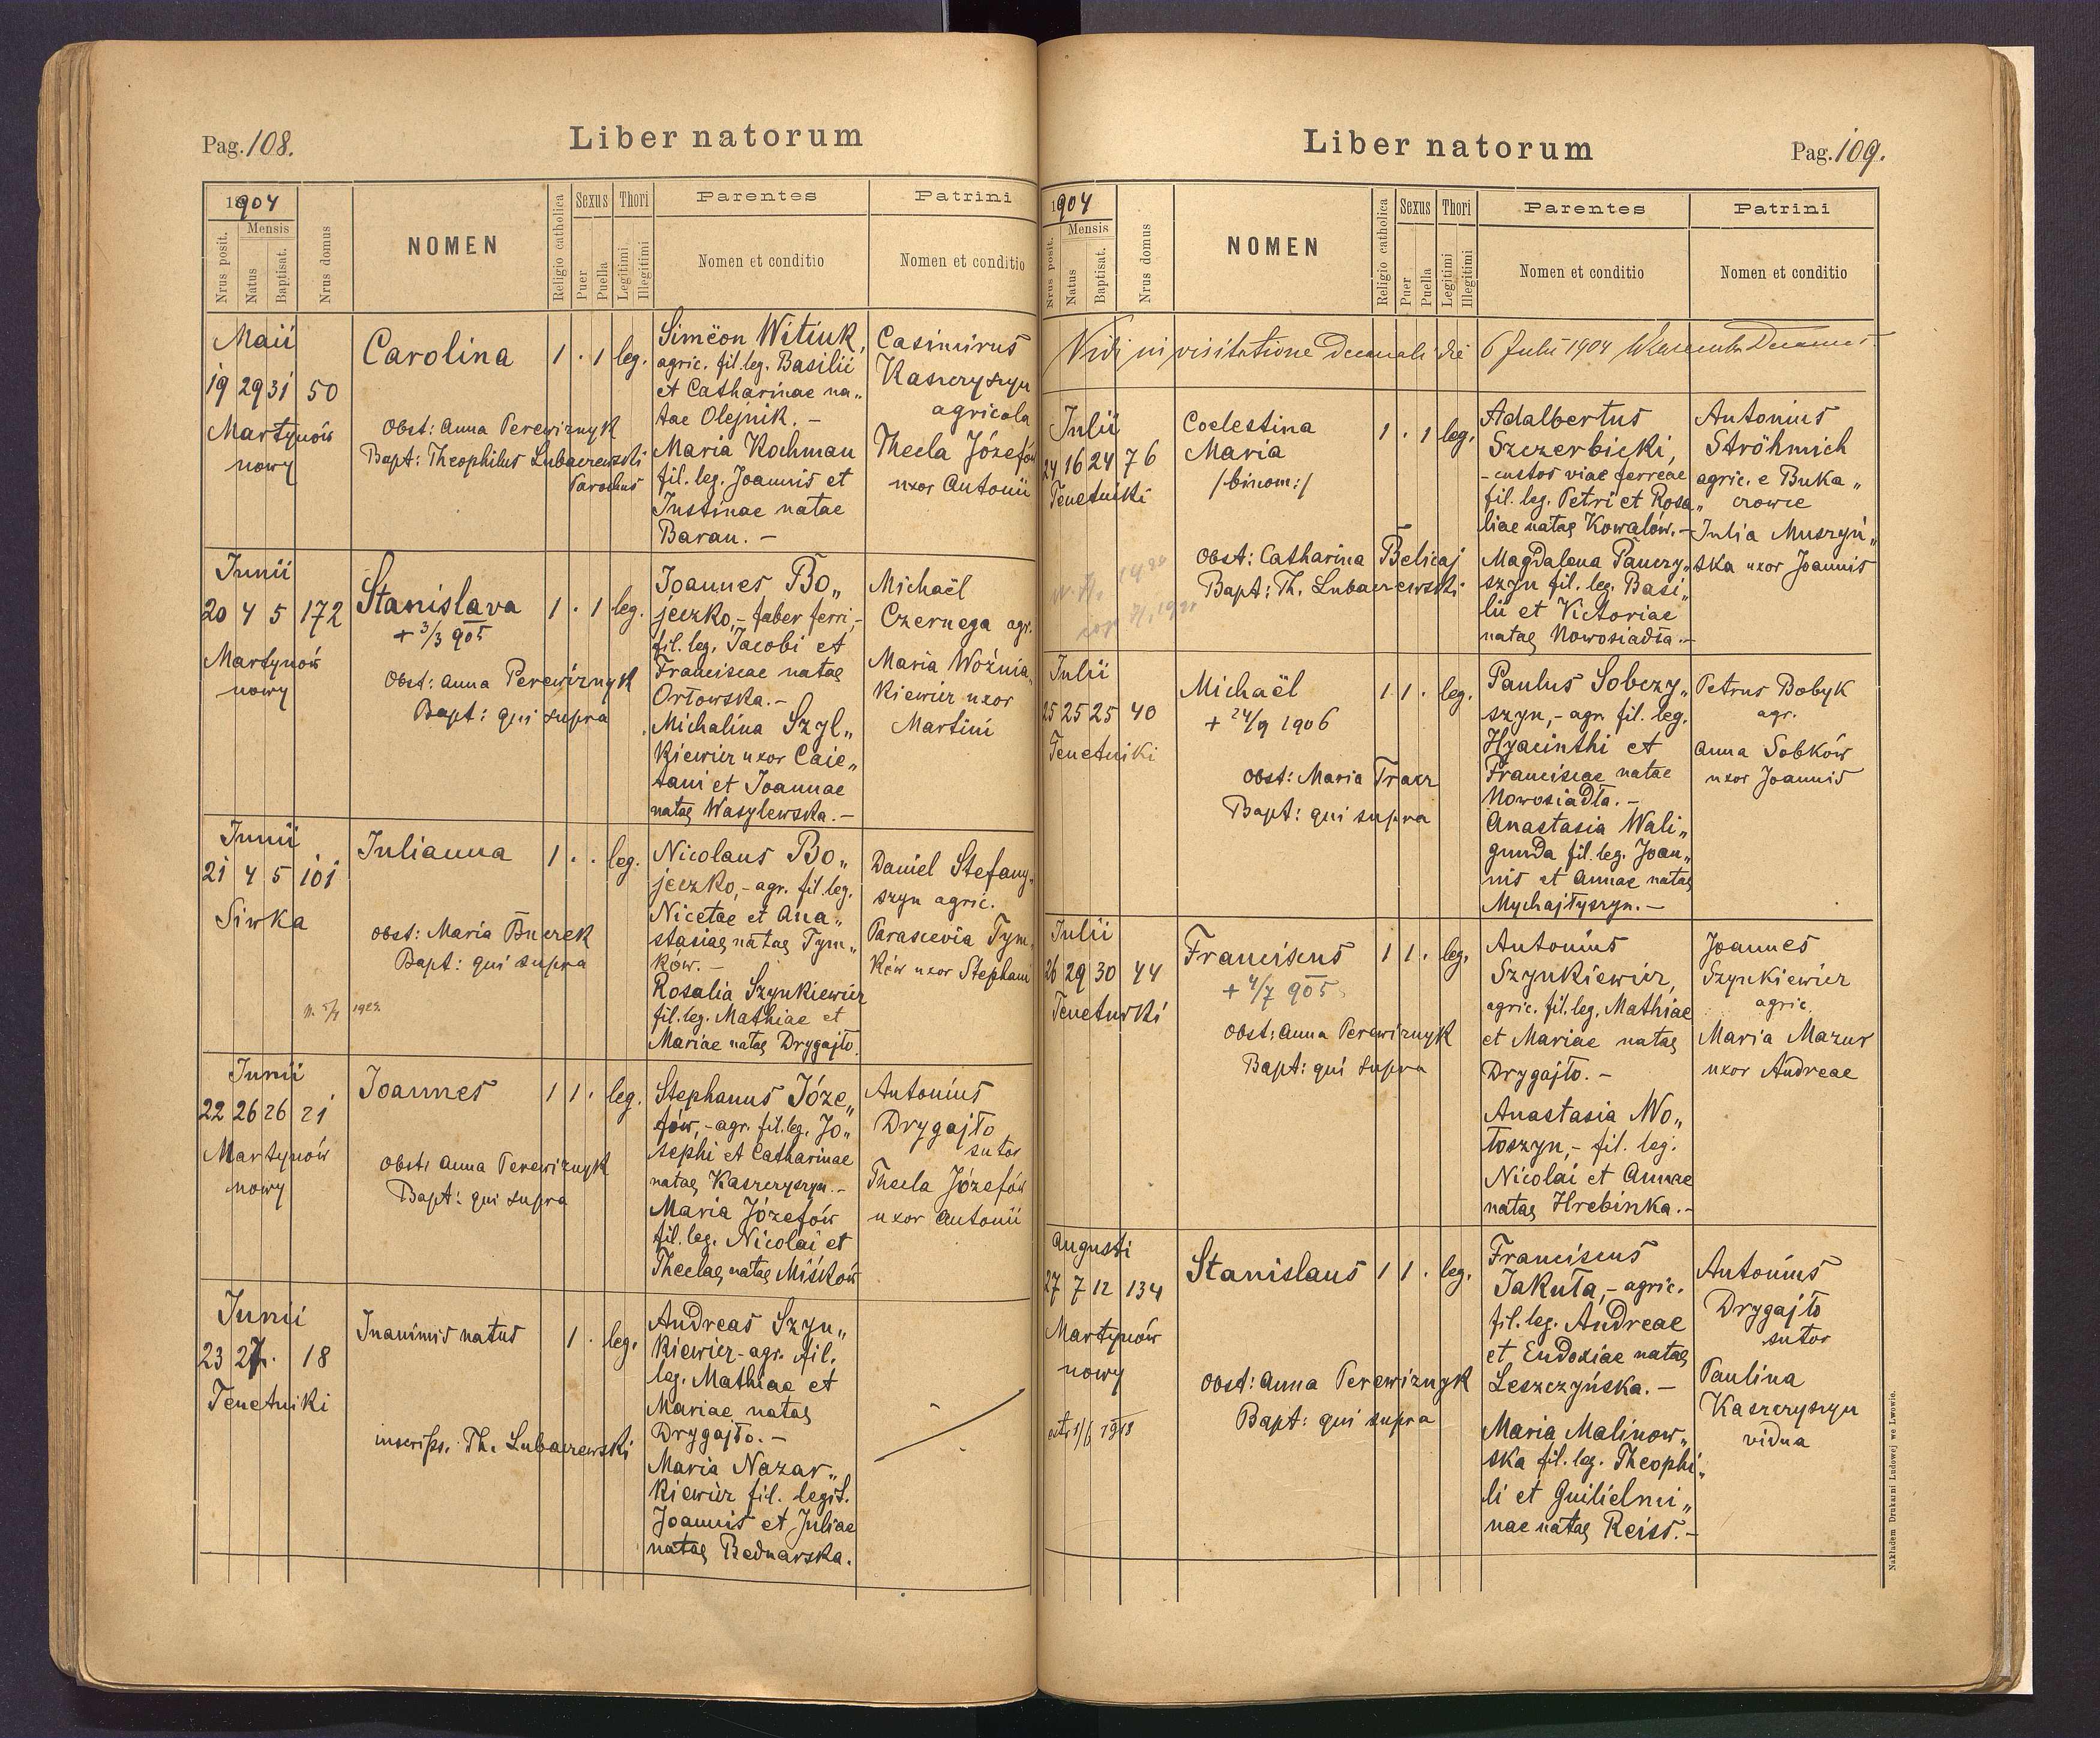 Pag. 108.
Liber natorum
1904
Mensis
Nrus posit.
Natus
Baptisat.
Nrus domus
NOMEN
Religio catholica
Sexus
Puer
Puella
Thori
Legitimi
Illegitimi
Parentes
Nomen et conditio
Patrini
Nomen et conditio
Maii
19 29 31 50
Martynów
nowy
Carolina
1 . 1 leg.
Obst: Anna Perewiznyk
Bapt: Theophilus Lubaczewski
Parochus
Simëon Witiuk,
agric. fil. leg. Basilii
et Catharinae na„
tae Olejnik. –
Maria Kochman
fil. leg. Joannis et
Justinae natae
Baran. –
Casimirus
Kaszczyszyn
agricola
Thecla Józefów
uxor Antonii
Junii
20 4 5 172
Martynów
nowy
Stanislava
+ 3/3 905
1 . 1 leg.
Obst: Anna Perewiznyk
Bapt: qui supra
Joannes Bo„
jeczko, - faber ferri, -
fil. leg. Jacobi et
Franciscae natae
Orłowska. –
Michalina Szyl„
kiewicz uxor Caie„
tani et Joannae
natae Wasylewska. –
Michaël
Czernega agr.
Maria Woźnia„
kiewicz uxor
Martini
Junii
21 4 5 101
Siwka
Julianna
1 . . leg.
Obst: Maria Buczek
Bapt: qui supra
Nicolaus Bo„
jeczko, - agr. fil. leg.
Nicetae et Ana„
stasiae natae Tym„
ków. –
Rosalia Szynkiewicz
fil. leg. Mathiae et
Mariae natae Drygajło.
Daniel Stefany„
szyn agric.
Parascevia Tym„
ków uxor Stephani
Junii
22 26 26 21
Martynów
nowy
Joannes
1 1 . leg.
Obst: Anna Perewiznyk
Bapt: qui supra
Stephanus Józe„
fów, - agr. fil. leg. Jo„
sephi et Catharinae
natae Kaszczyszyn. –
Maria Józefów
fil. leg. Nicolai et
Theclae natae Miśków
Antonius
Drygajło
sutor
Thecla Józefów
uxor Antonii
Junii
23 27 . 18
Tenetniki
Inanimis natus
1 . leg.
inscrips. Th. Lubaczewski
Andreas Szyn„
kiewicz - agr. fil.
leg. Mathiae et
Mariae natae
Drygajło. –
Maria Nazar„
kiewicz fil. legit.
Joannis et Juliae
natae Bednarska.
Liber natorum
Pag. 109.
1904
Mensis
Nrus posit.
Natus
Baptisat.
Nrus domus
NOMEN
Religio catholica
Sexus
Puer
Puella
Thori
Legitimi
Illegitimi
Parentes
Nomen et conditio
Patrini
Nomen et conditio
Vidi in visitatione decanali die 6 Julii 1904 Decanus
Julii
24 16 24 76
Tenetniki
Coelestina
Maria
/binom:/
1 . 1 leg.
Obst: Catharina Belicaj
Bapt: Th. Lubaczewski
Adalbertus
Szczerbicki,
- custos viae ferreae
fil. leg. Petri et Rosa„
liae natae Kowalów. –
Magdalena Panczy„
szyn fil. leg. Basi„
lii et Victoriae
natae Nowosiadła. –
Antonius
Ströhmich
agric. e Buka„
czowce
Julia Muszyń„
ska uxor Joannis
Julii
25 25 25 40
Tenetniki
Michaël
+ 24/9 1906
1 1 . leg.
Obst: Maria Tracz
Bapt: qui supra
Paulus Sobczy„
szyn, - agr. fil. leg.
Hyacinthi et
Franciscae natae
Nowosiadła. –
Anastasia Wali„
gunda fil. leg. Joan„
nis et Annae natae
Mychajłyszyn. –
Petrus Bobyk
agr.
Anna Sobków
uxor Joannis
Julii
26 29 30 44
Tenetniki
Franciscus
+ 4/7 905
1 1 . leg.
Obst: Anna Perewiznyk
Bapt: qui supra
Antonius
Szynkiewicz,
agric. fil. leg. Mathiae
et Mariae natae
Drygajło. –
Anastasia Wo„
łoszyn, - fil. leg.
Nicolai et Annae
natae Hrebinka. –
Joannes
Szynkiewicz
agric.
Maria Mazur
uxor Andreae
Augusti
27 7 12 134
Martynów
nowy
Stanislaus
1 1 . leg.
Obst: Anna Perewiznyk
Bapt: qui supra
Franciscus
Jakuta, - agric.
fil. leg. Andreae
et Eudoxiae natae
Leszczyńska. –
Maria Malinow„
ska fil. leg. Theophi„
li et Guilielmi„
nae natae Reiss. –
Antonius
Drygajło
sutor
Paulina
Kaszczyszyn
vidua
Nakładem Drukarni Ludowej we Lwowie.